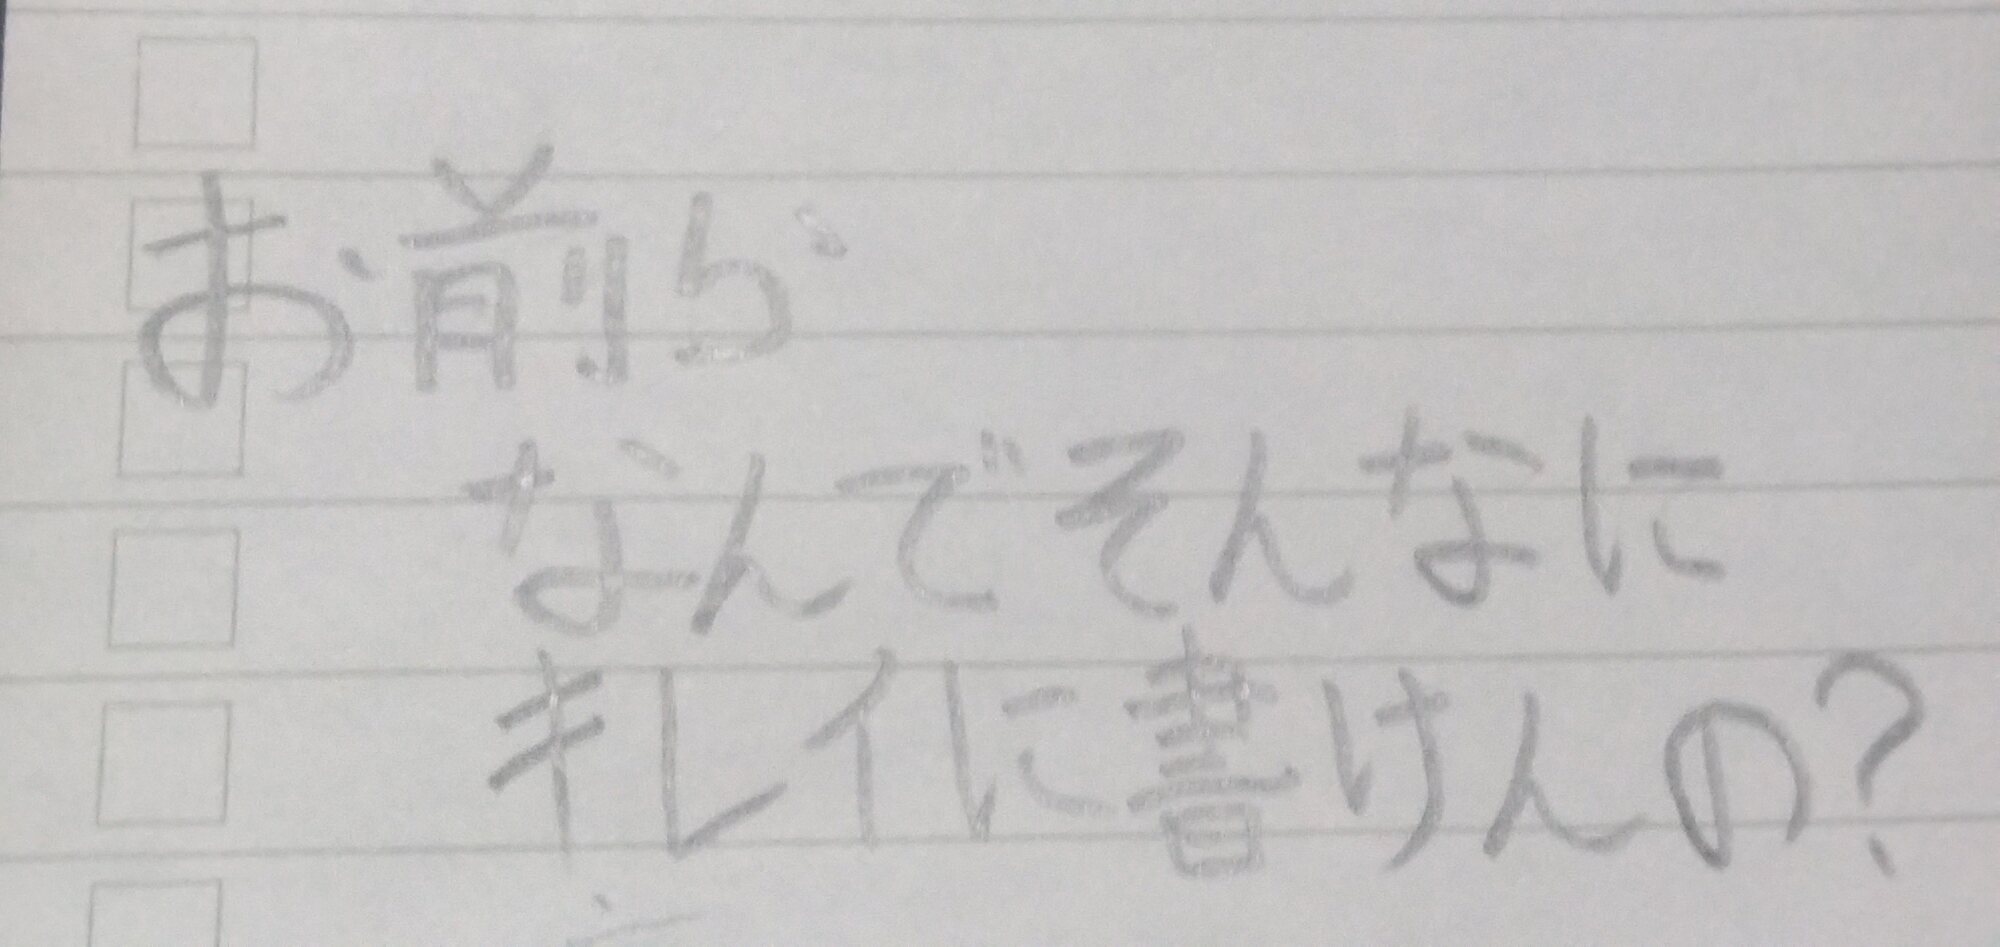 お前ら
なんでそんなに
キレイに書けんの?